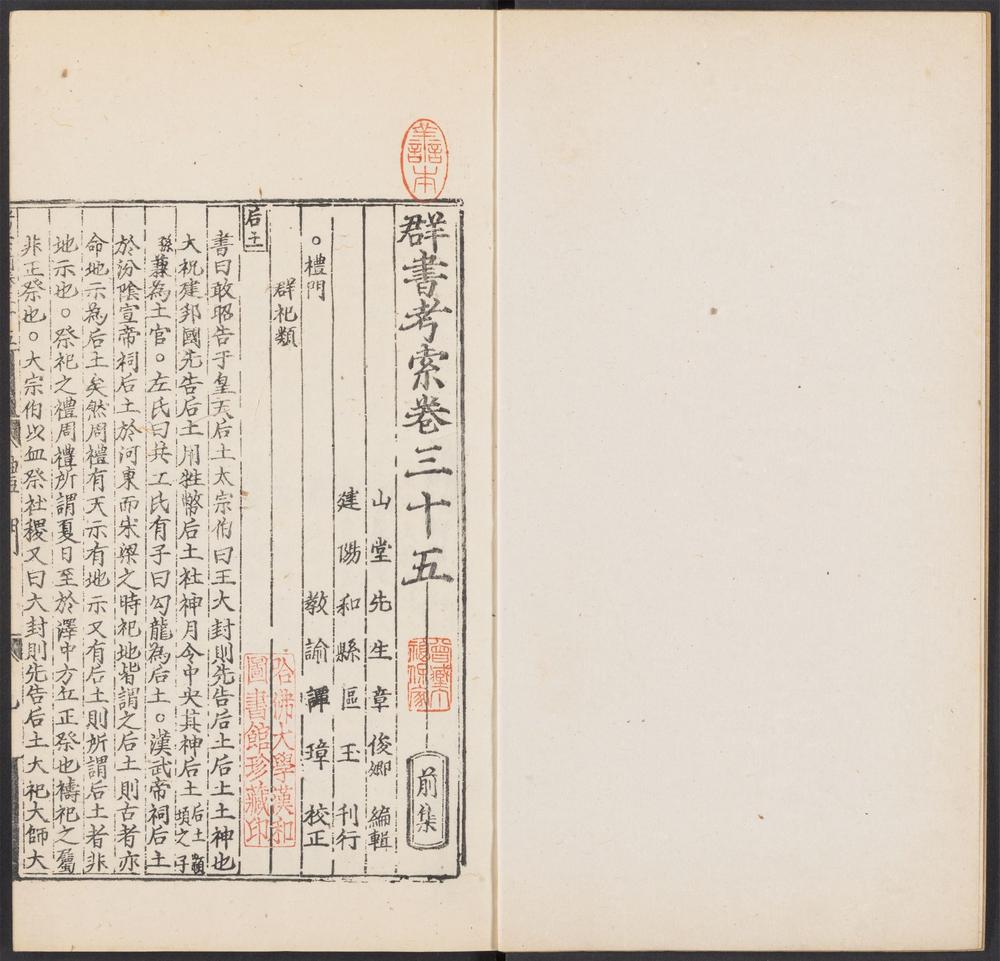 善本
群書考索卷三十五
前集
山堂先生章俊卿編輯
建陽知縣區玉刊行
教諭譚璋校正
○禮門
群祀類
哈佛大學漢和
圖書館珍藏印
后土
書曰敢昭告于皇天后土太宗伯曰王大封則先告后土后土土神也
大祝建邦國先告后土用牲幣后土社神月令中央其神后土后土顓頊之子
孫兼為土官○左氏曰共工氏有子曰勾龍為后土○漢武帝祠后土
於汾陰宣帝祠后土於河東而宋梁之時祀地皆謂之后土則古者亦
命地示為后土矣然周禮有天示有地示又有后土則所謂后土者非
地示也○祭祀之禮周禮所謂夏日至於澤中方丘正祭也禱祀之屬
非正祭也○大宗伯以血祭社稷又曰大封則先告后土大祀大師大